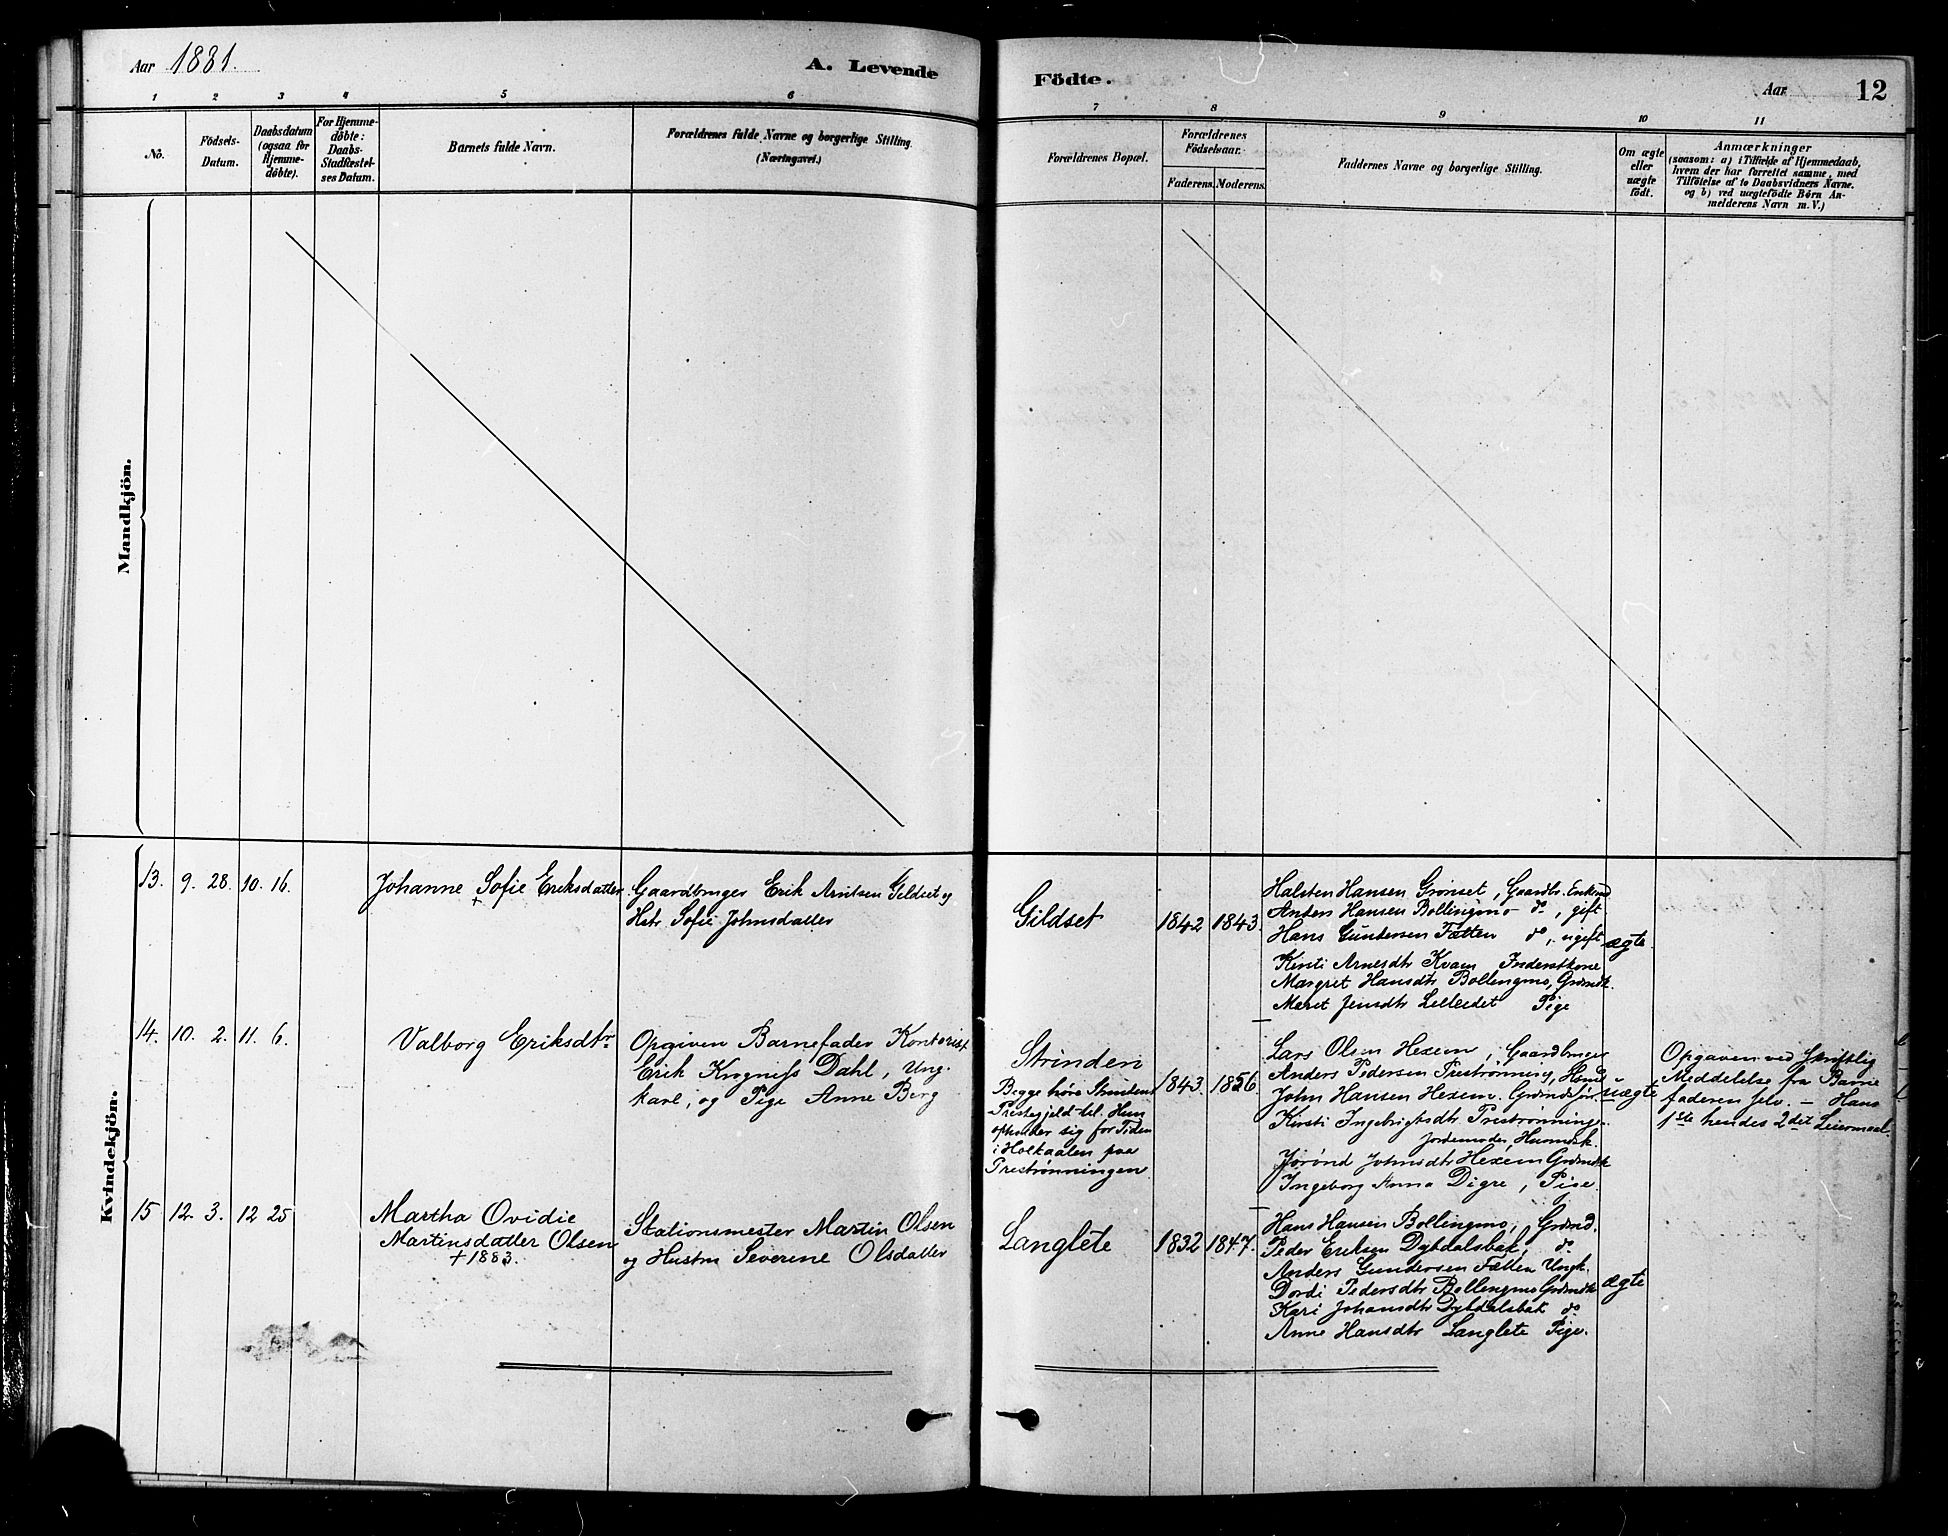 Aar 1881.
A. Levende
Födte.
Aar
12
1 2 3 4 5 6 7 8 9 10 11
No.
Födsels-
Datum.
Daabsdatum
(ogsaa for
Hjemme-
döbte).
For Hjemme-
döbte:
Daabs-
Stadfæstel-
ses Datum.
Barnets fulde Navn.
Forældrenes fulde Navne og borgerlige Stilling
(Næringsvei.)
Forældrenes Bopæl.
Forældrenes
Födselsaar.
Faderens. Moderens.
Faddernes Navne og borgerlige Stilling.
Om ægte
eller
uægte
födt.
Anmærkninger
(saasom: a) i Tilfælde af Hjemmedaab,
hvem der har forrettet samme, med
Tilföielse af to Daabsvidners Navne.
og b) ved uægtefödte Börn An-
melderens Navn m. V.)
Mandkjön.
Kvindekjön.
13. 9. 28. 10. 16.
Johanne Sofie Eriksdatter
+
Gaardbruger Erik Arntsen Gildset og
Hstr Sofie Johnsdatter
Gildset
1842 1843.
Halsten Hansen Grönset, Gaardbr. Enkmd
Anders Hansen Bollingmo do, gift
Hans Gundersen Fætten do, ugift
Kirsti Arnesdtr Kvam Inderstkone
Margret Hansdtr Bollingmo, Grdmdk.
Meret Jensdtr Pige
ægte.
14. 10. 2. 11. 6.
Valborg Eriksdtr
Opgiven Barnefader Kontorist
Erik Dahl, Ung-
karl, og Pige Anne Berg
Strinden
Begge höre Strindens
Prestegjeld til. Hun
opholder sig for Tiden
i Holkaalen paa
Preströnningen
1843. 1856.
Lars Olsen Hexem, Gaardbruger
Anders Pedersen Preströnning, Husmd
John Hansen Hexem. Grdmdssön.
Kirsti Ingebrigtsdtr Preströnningen.
Jordemoder, Husmdsk.
Jörönd Johnsdtr Hexem Grdmdsk
Ingeborg Anna Digre, Pige.
uægte
Opgaven ved Skriftlig
Meddelelse fra Barne
faderen selv. — Hans
1ste hendes 2det Leiermaal.
15 12. 3. 12 25
Martha Ovidie
Martinsdatter Olsen
+ 1883.
Stationsmester Martin Olsen
og Hustru Severine Olsdatter
Langlete
1832 1847.
Hans Hansen Bollingmo, Grdmd.
Peder Eriksen Dybdalsbak, do.
Anders Gundersen Fætten Ungk.
Dordi Pedersdtr Bollingmo Grdmdsk
Kari Johansdtr Dybdalsbak do
Anne Hansdtr Langlete Pige.
ægte